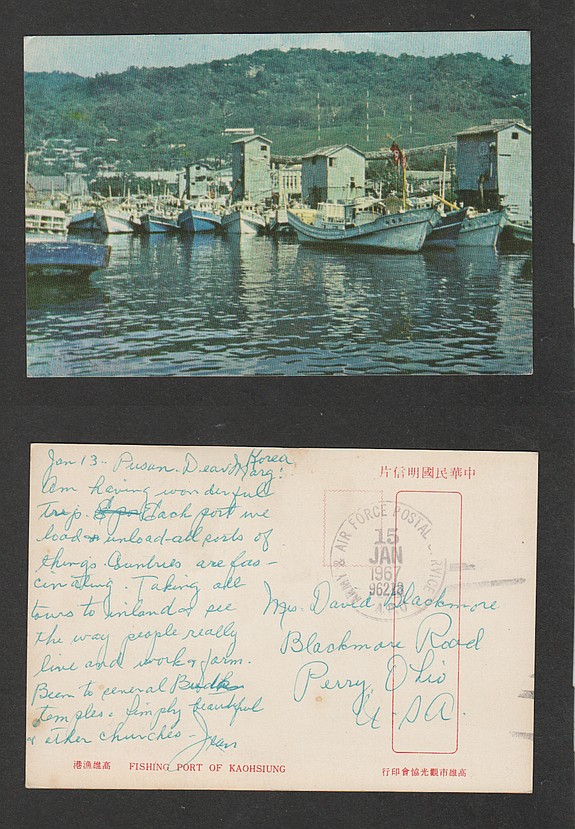 Jan 13 - Pusan. Korea
Dear Marg:
Am having wonderful
trip. Each port we
load & unload all sorts of
things. Countries are fas-
cinating. Taking all
tours to inland & see
the way people really
live and work & farm.
Been to several Buddh
temples. Simply beautiful
& other churches -
Jean
中華民國明信片
ARMY & AIR FORCE POSTAL SERVICE
15
JAN
1967
96218
Mrs. David Blackmore
Blackmore Road
Perry, Ohio
U.S.A.
高雄漁港 FISHING PORT OF KAOHSIUNG
高雄市觀光協會印行